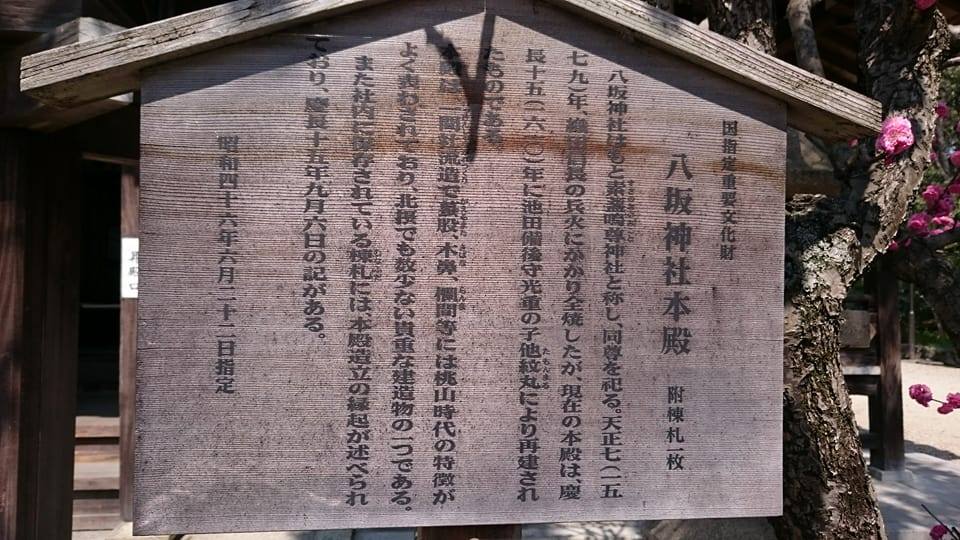 国指定重要文化財
八坂神社本殿 附棟札一枚
八坂神社はもと素盞嗚尊神社と称し、同尊を祀る。天正七(一五
七九)年、織田信長の兵火にかかり全焼したが、現在の本殿は、慶
長十五(一六一〇)年に池田備後守光重の子他紋丸により再建され
たものである。
本殿は、一間社流造で蟇股、木鼻、欄間等には桃山時代の特徴が
よく表わされており、北摂でも数少ない貴重な建造物の一つである。
また社内に保存されている棟札には、本殿造立の縁起が述べられ
ており、慶長十五年九月六日の記がある。
昭和四十六年六月二十二日指定